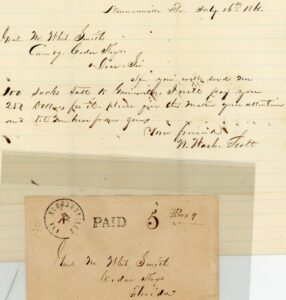 Fla. July 16th 1861.
Genl. M. Whit Smith
Camp, Cedar Keys
Dear Sir
If you will send me
100 sacks salt to Gainesville I will pay you
250 Dollars for it. please give this matter your attention
and let me hear from you
Your friend
W. Wash. Scott
FLA
PAID 5 Box 9
Genl M Whit Smith
Cedar Keys
Florida